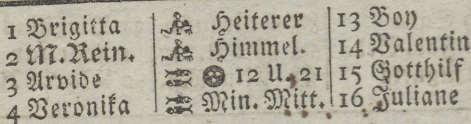 1 Brigitta Heiterer 13 Boy
2 M. Rein. Himmel. 14 Valentin
3 Arvide 12 U. 21 15 Gotthilf
4 Veronika Min. Mitt. 16 Juliane